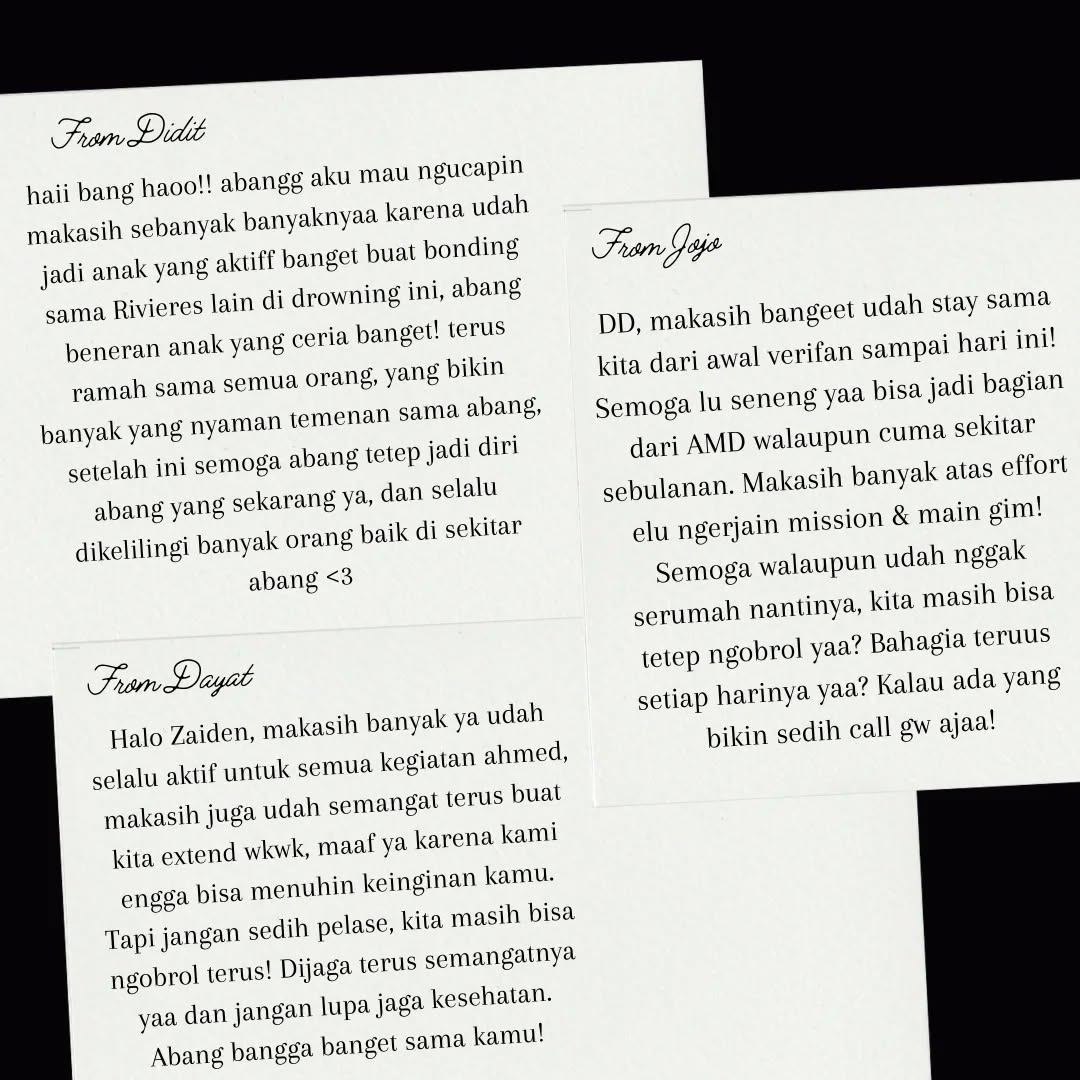 From Didit
haii bang haoo!! abangg aku mau ngucapin
makasih sebanyak banyaknyaa karena udah
jadi anak yang aktiff banget buat bonding
sama Rivieres lain di drowning ini, abang
beneran anak yang ceria banget! terus
ramah sama semua orang, yang bikin
banyak yang nyaman temenan sama abang,
setelah ini semoga abang tetep jadi diri
abang yang sekarang ya, dan selalu
dikelilingi banyak orang baik di sekitar
abang <3
From Jojo
DD, makasih bangeet udah stay sama
kita dari awal verifan sampai hari ini!
Semoga lu seneng yaa bisa jadi bagian
dari AMD walaupun cuma sekitar
sebulanan. Makasih banyak atas effort
elu ngerjain mission & main gim!
Semoga walaupun udah nggak
serumah nantinya, kita masih bisa
tetep ngobrol yaa? Bahagia teruus
setiap harinya yaa? Kalau ada yang
bikin sedih call gw ajaa!
From Dayat
Halo Zaiden, makasih banyak ya udah
selalu aktif untuk semua kegiatan ahmed,
makasih juga udah semangat terus buat
kita extend wkwk, maaf ya karena kami
engga bisa menuhin keinginan kamu.
Tapi jangan sedih pelase, kita masih bisa
ngobrol terus! Dijaga terus semangatnya
yaa dan jangan lupa jaga kesehatan.
Abang bangga banget sama kamu!